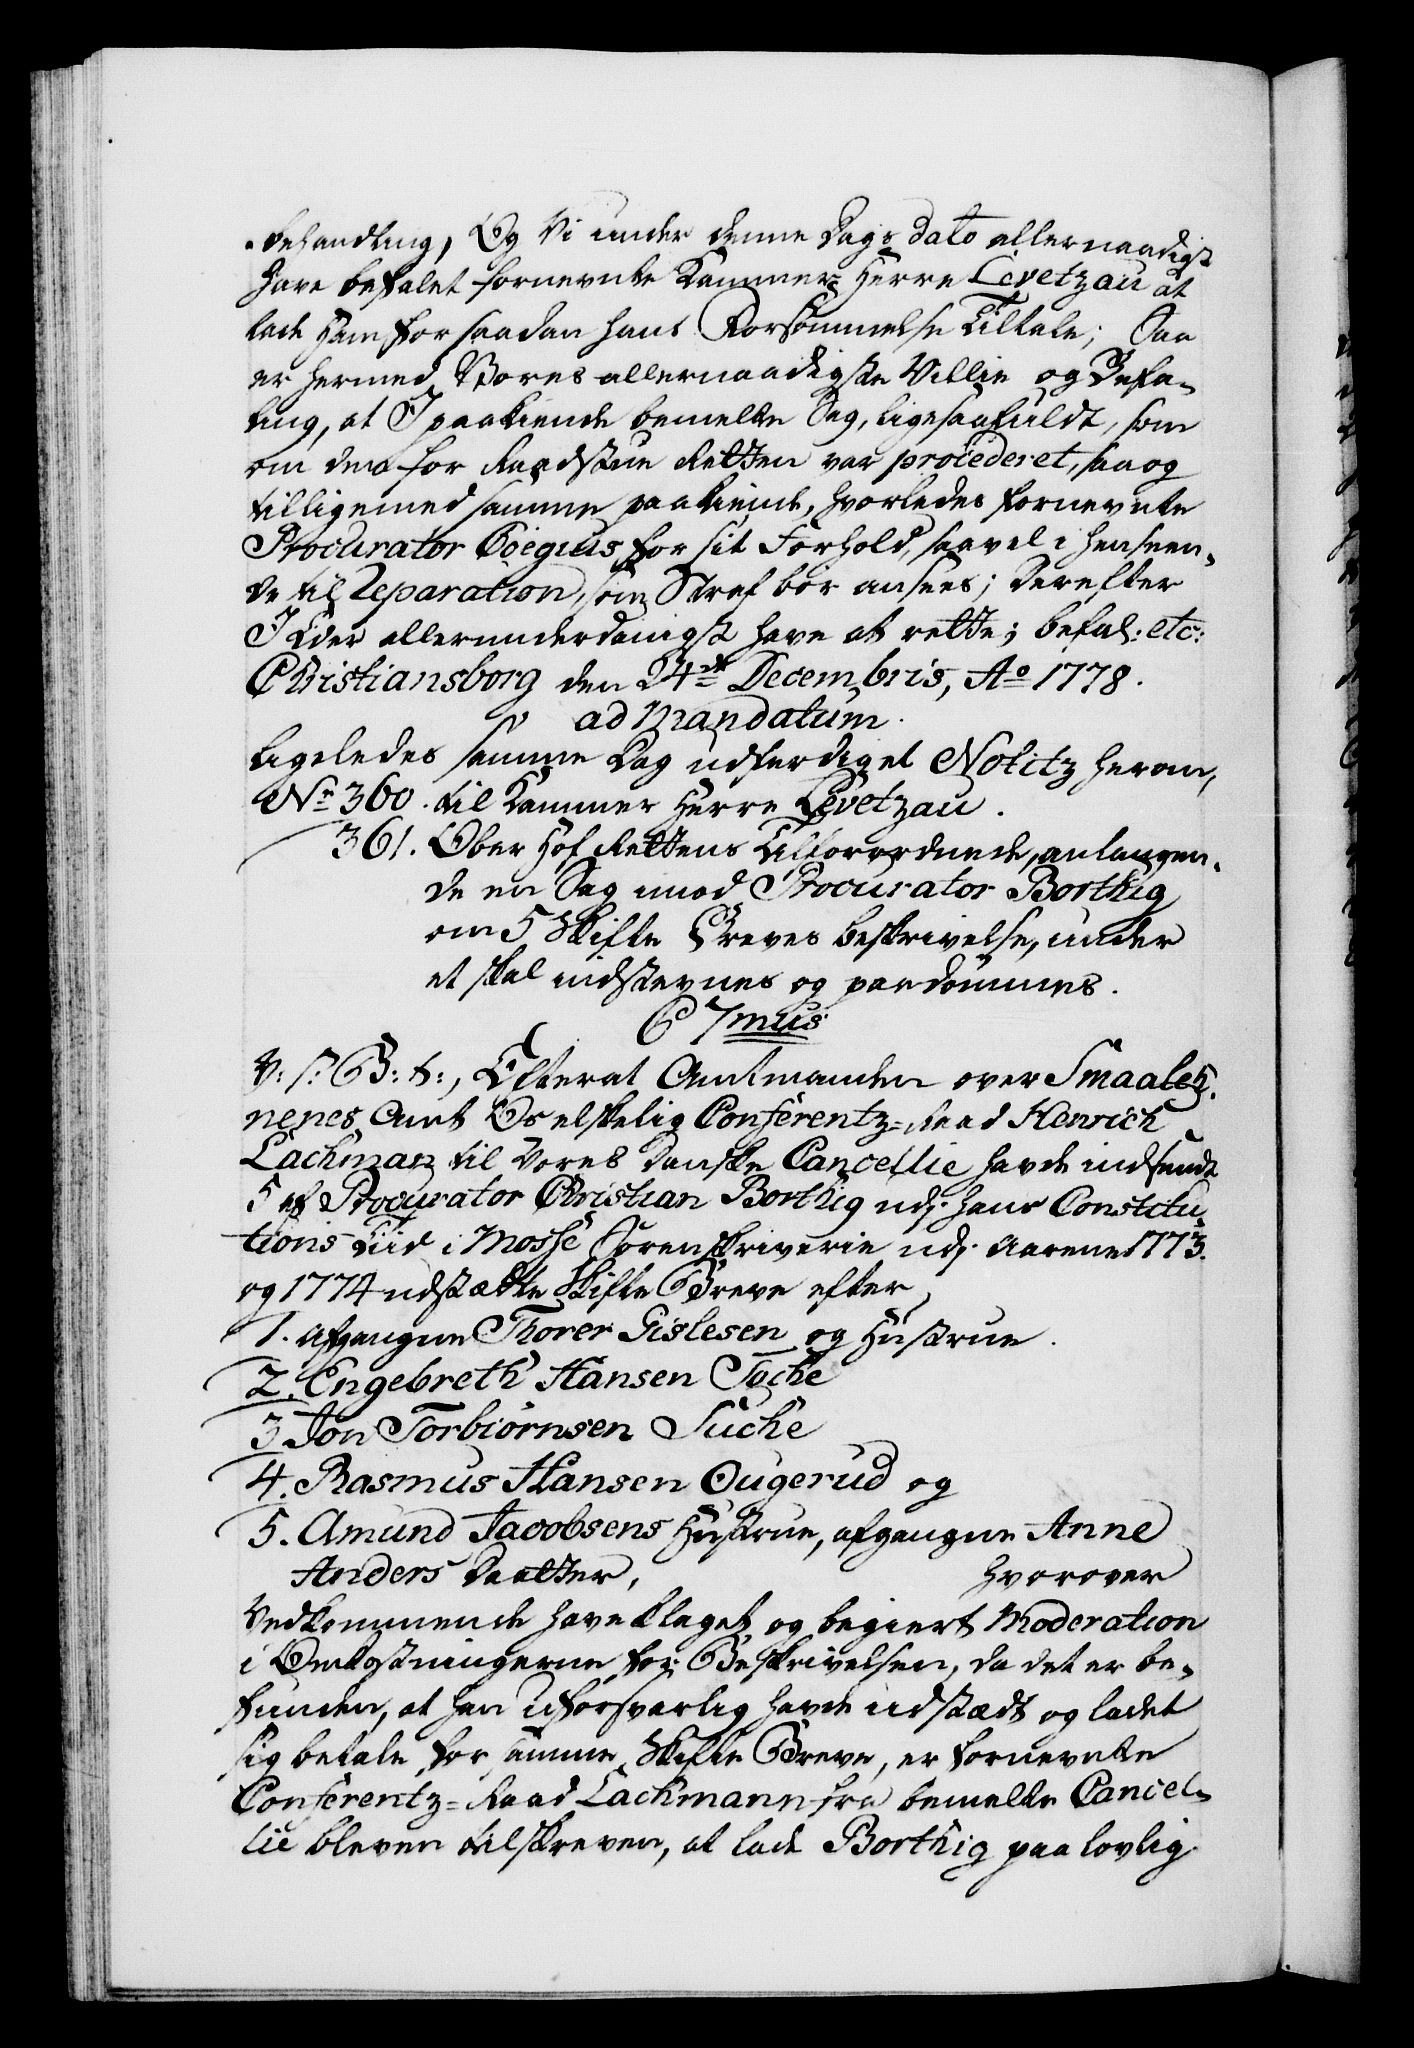 behandling, Og Vi under denne Dags Dato allernaadigst
have befalet fornevnte Kammer-Herre Levetzau at
lade ham for saadan hans Forsömmelse Tiltale; Saa
er hermed Vores allernaadigste Villie og Befa-
ling, at I paakiende bemelte Sag, ligesaafuldt, som
om den for Raadstue Retten var procederet, saa og
tilligemed samme paakiende, hvorledes fornevnte
Procurator for sit Forhold, saavel i henseen-
de til Reparation, som Straf bör ansees; Derefter
I Eder allerunderdanigst have at rette; befal: etc:
Christiansborg den 24de Decembris, Ao 1778.
ad Mandatum.
Ligeledes samme Dag udferdiget Notitz herom,
No 360. til Kammer Herre Levetzau.
361. Ober Hof Rettens Tilforordnede, anlangen-
de en Sag imod Procurator Borthig
om 5 Skifte Breves beskrivelse, under
et skal indstevnes og paadömmes.
C 7mus
V: s: G: t:, Efterat Amtmanden over Smaaleh-
nenes Amt Os elskelig Conferentz-Raad Henrich
Lachman til Vores Danske Cancellie havde indsendt
5 af Procurator Christian Borthig udj hans Constitu-
tions Tiid i Mosse Sorenskriverie udj Aarene 1773.
og 1774 udstædte Skifte Breve efter
1. afgangne Thorer Gislesen og Hustrue.
2. Engebreth Hansen Toche
3 Jon Torbiörnsen Suche
4. Rasmus Hansen Ougerud og
5. Amund Jacobsens Hustrue, afgangne Anne
Anders Daatter, hvorover
Vedkommende have klaget og begiert Moderation
i Omkostningerne for Beskrivelsen, da det er be-
funden, at han uforsvarlig havde udstædt og ladet
sig betale for samme Skifte Breve, er fornevnte
Conferentz-Raad Lachmann fra bemelte Cancel-
lie bleven tilskreven, at lade Borthig paa lovlig